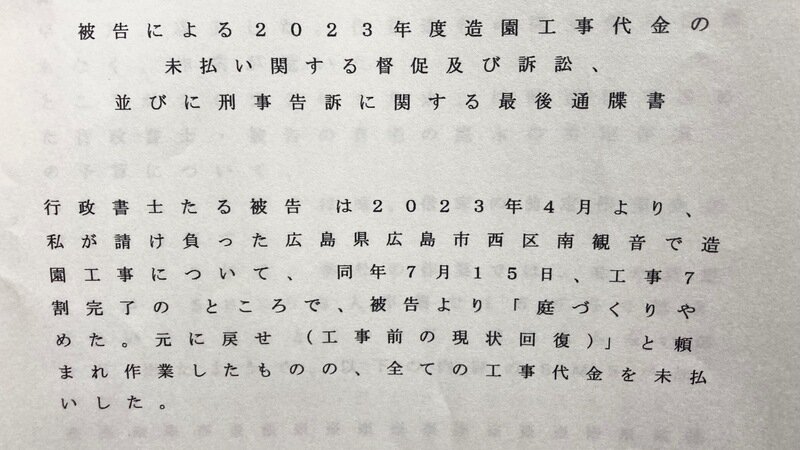 被告による２０２３年度造園工事代金の
未払い関する督促及び訴訟、
並びに刑事告訴に関する最後通牒書
行政書士たる被告は２０２３年４月より、
私が請け負った広島県広島市西区南観音で造
園工事について、同年７月１５日、工事７
割完了のところで、被告より「庭づくりや
めた。元に戻せ（工事前の現状回復）」と頼
まれ作業したものの、全ての工事代金を未払
いした。